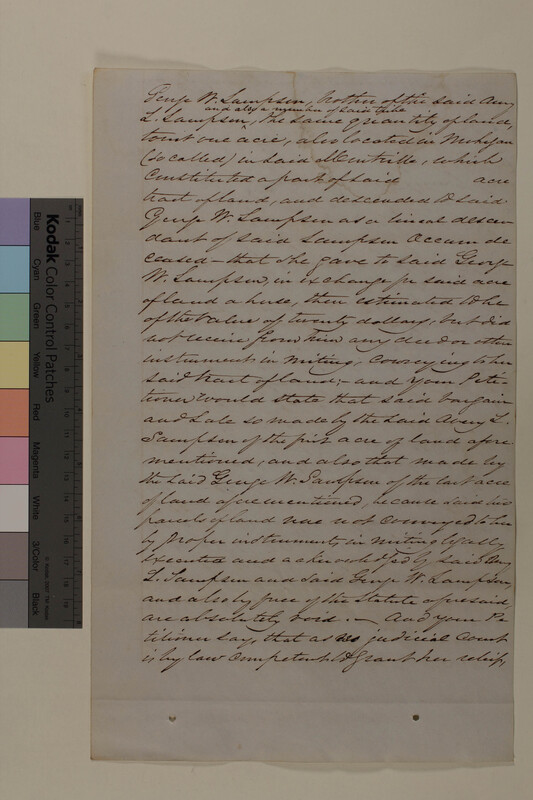 George W. Sampson, brother of the said Avery
and also a member of said tribe
L. Sampson, the same quantity of land,
towit one acre, also located in Mohegan
(so called) in said Montville, which
Constituted a part of said acre
tract of land, and descended to said
George W. Sampson as a lineal descen-
dant of said Sampson Occum de
ceased — that she gave to said George
W. Sampson, in exchange for said acre
of land a horse, then estimated to be
of the value of twenty dollars, but did
not receive from him any deed or other
instrument in writing, Conveying to her
said tract of land; — and your Peti-
tioner would state that said bargain
and Sale so made by the said Avery L.
Sampson of the first acre of land afore
mentioned, and also that made by
the said George W. Sampson of the last acre
of land aforementioned, because said two
parcels of land was not Conveyed to her
by proper instruments in writing legally
executed and acknowledged by said Avery
L. Sampson and said George W. Sampson,
and also by force of the Statute aforesaid,
are absolutely void. — And your Pe
titioner says, that as no judicial Court
is by law Competent to grant her relief,
Kodak
Color Control Patches
Blue
Cyan
Green
Yellow
Red
Magenta
White
3/Color
Black